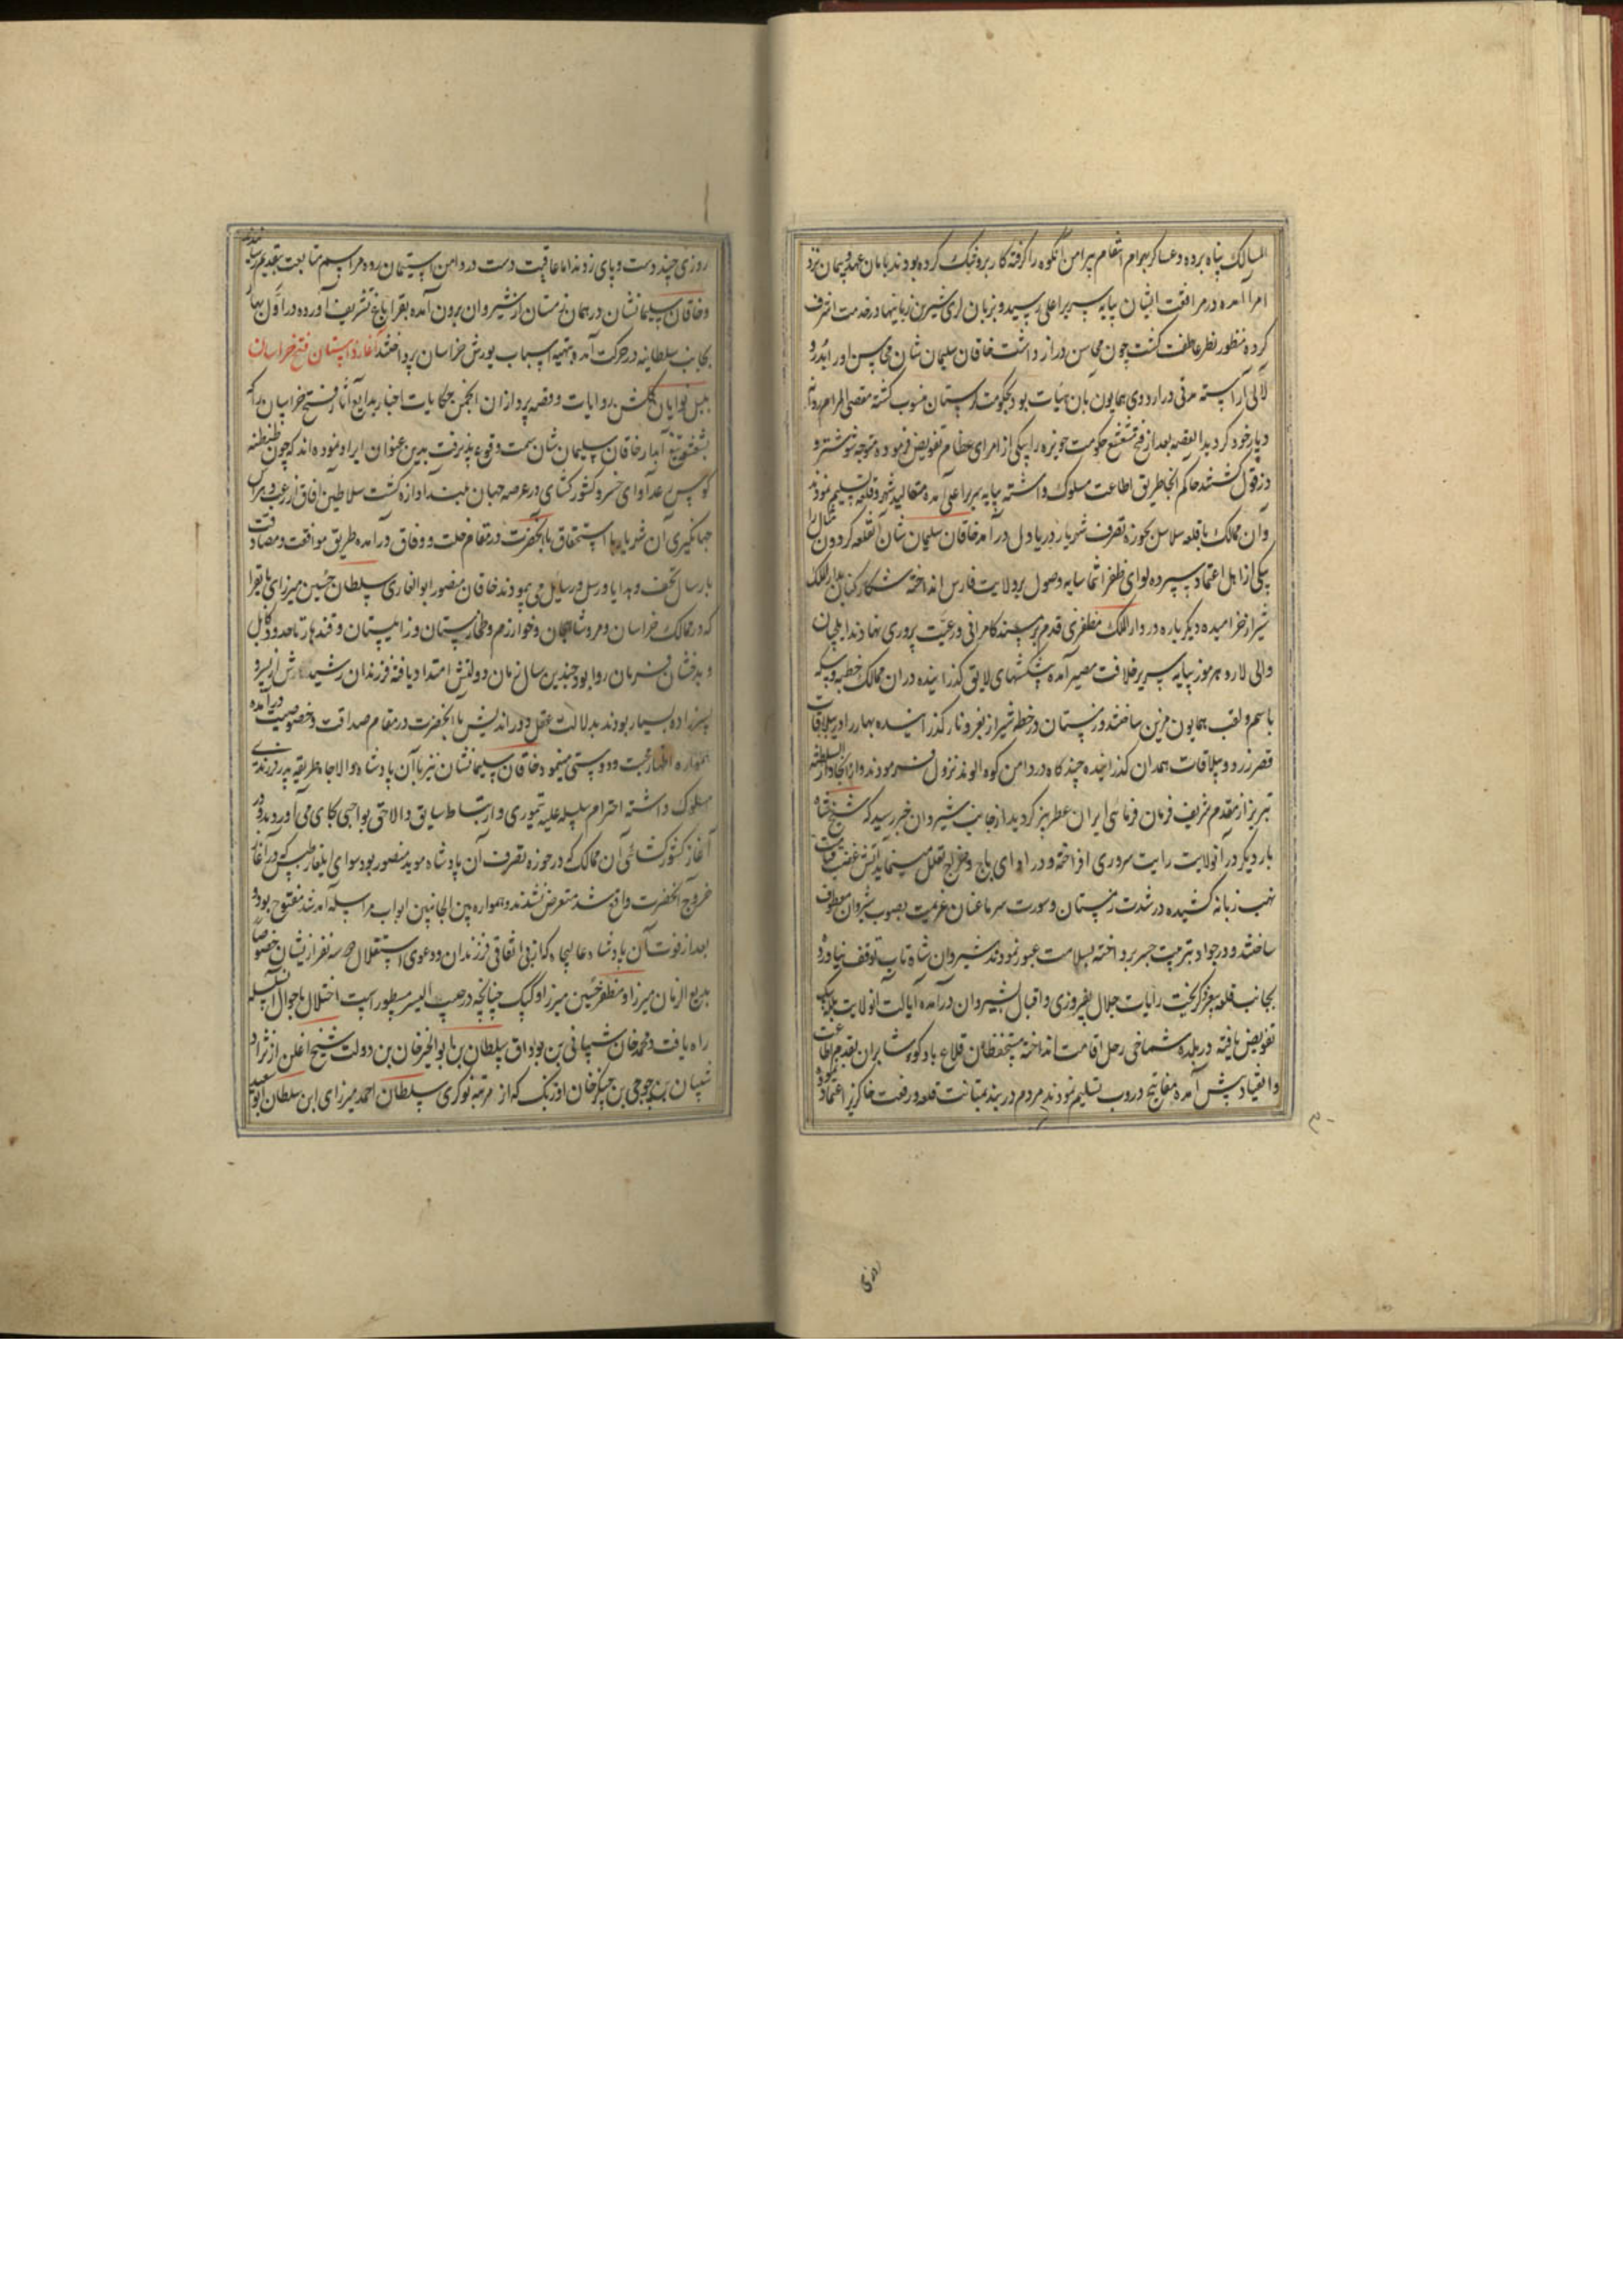 المسالک پناه برده و عساکر بهرام انتقام پیرامن آنکوه را گرفته کار برو تنک کرده بودند بامان عهد و پیمان نزد
امرا آمده در مرافقت ایشان بپایه سریر اعلی رسید و بزبان لری شیرین زبانیها در خدمت اشرف
کرده منظور نظر عاطفت کشت چون محاسن دراز داشت خاقان سلیمان شان محاسن او را بدر و
لآلی آراسته مدتی در اردوی همایون بان هیات بود بحکومت لرستان منسوب کشته مقضی المرام روانه
دیار خود کردید القصه بعد از فتح مشعشع حکومت حویزه را بیکی از امرای عظام تفویض فرموده متوجه شوشتر و
دزفول کشتند حاکم آنجا طریق اطاعت مسلوک داشته بپایه سریر اعلی آمده مقالید شهر و قلعه تسلیم نمود
و آن ممالک با قلعه سلاسل بحوزه تصرف شهریار دریا دل در آمد خاقان سلیمان شان آن قلعه کردون مثال را
بیکی از اهل اعتماد سپرده لوای ظفر انتما سایه وصول بر ولایت فارس انداخته شکار کنان بدار الملک
شیراز خرامیده دیکر باره در دار الملک مظفری قدم بر مسند کامرانی و رعیت پروری نهادند ایلچیان
والی لار و هرموز بپایه سریر خلافت مصیر آمده پیشکشهای لایق کذرانیده در ان ممالک خطبه و سکه
باسم و لقب همایون مزین ساختند و زمستان در خطه شیراز بفر و ناز کذرانیده بهار را در ییلاقات
قصر زرد و ییلاقات همدان کذرانیده چند کاه در دامن کوه الوند نزول فرمودند و از آنجا دار السلطنه
تبریز از مقدم شریف فرمان فرمای ایران عطر بیز کردید از جانب شیروان خبر رسید که شیخ شاه
بار دیکر در آنولایت رایت سروری افراخته و در ادای باج و خراج تعلل مینماید آتش غضب قیامت
نهب زبانه کشیده در شدت زمستان و سورت سرما عنان عزیمت بصوب شیروان معطوف
ساختند و در جواد بترتیب جسر پرداخته بسلامت عبور نمودند شیروان شاه تاب توقف نیاورد
بجانب قلعه بیغرد کریخت رایات جلال بفیروزی و اقبال بشیروان درآمده ایالت آنولایت بلله بیک
تفویض یافته در بلده شماخی رحل اقامت انداخته مستحفظان قلاع بادکوبه و شابران بقدم اطاعت
و انقیاد پیش آمده مفاتیح دروب تسلیم نمودند مردم دربند بمتانت قلعه و رفعت خاکریز اعتماد نموده
روزی
روزی چند دست و پای زدند اما عاقبت دست در دامن استیمان زده مراسم متابعت بتقدیم رسانیدند
و خاقان سلیمانشان در همان زمستان از شیروان برون آمده بقراباغ تشریف آورده در اول بهار
بجانب سلطانیه در حرکت آمده بتهیه اسباب یورش خراسان پرداختند آغاز داستان فتح خراسان
بلبل نوایان کلشن روایات و قصه پردازان انجمن حکایات اخبار بدایع آثار فتح خراسان را که
بشعشعه تیغ آبدار خاقان سلیمان شان سمت وقوع پذیرفت بدین عنوان ایراد نموده اند که چون طنطنه
کوس رعد آوای خسرو کشور کشای در عرصه جهان بلند آوازه کشت سلاطین آفاق از رعب و هراس
جهانکیری آن شهریار با استحقاق با آنحضرت در مقام خلت و وفاق درآمده طریق موافقت و مصادقت
بارسال تحف و هدایا و رسل و رسایل می پیمودند خاقان منصور ابو الغازی سلطان حسین میرزای بایقرا
که در ممالک خراسان و مرو شاهجان و خوارزم و طخارستان و زابلستان و قندهار تا حدود کابل
و بدخشان فرمان روا بود چندین سال زمان دولتش امتداد یافته فرزندان رشید داشت از پسر و
پسر زاده بسیار بودند بدلالت عقل دور اندیش با آنحضرت در مقام صداقت و خصوصیت درآمده
همواره اظهار محبت و دوستی مینمود و خاقان سلیمانشان نیز با آن پادشاه والا جاه طریقه پدر فرزندی
مسلوک داشته احترام سلسله علیه تیموری و ارتباط سابق و لاحق بواجبی بجای می آوردند و در
آغاز کشور کشائی آن ممالک که در حوزه تصرف آن پادشاه موید منصور بود سوای ایلغار طبس که در آغاز
خروج آنحضرت واقع شد متعرض نشدند و همواره بین الجانبین ابواب مراسله آمد شد مفتوح بود و
بعد از فوت آن پادشاه عالیجاه که از بی اتفاقی فرزندان و دعوی استقلال هر سه نفر از یشان خصوصا
بدیع الزمان میرزا و مظفر حسین میرزا و کپک چنانچه در حبیب السیر مسطور است اختلال باحوال آن سلسله
راه یافت و محمد خان شیبانی بن بوداق سلطان بن ابو الخیر خان بن دولت شیخ اغلن از نژاد
شیبان بن جوجی بن چنکیز خان اوزبک که از مرتبه نوکری سلطان احمد میرزای ابن سلطان ابوسعید